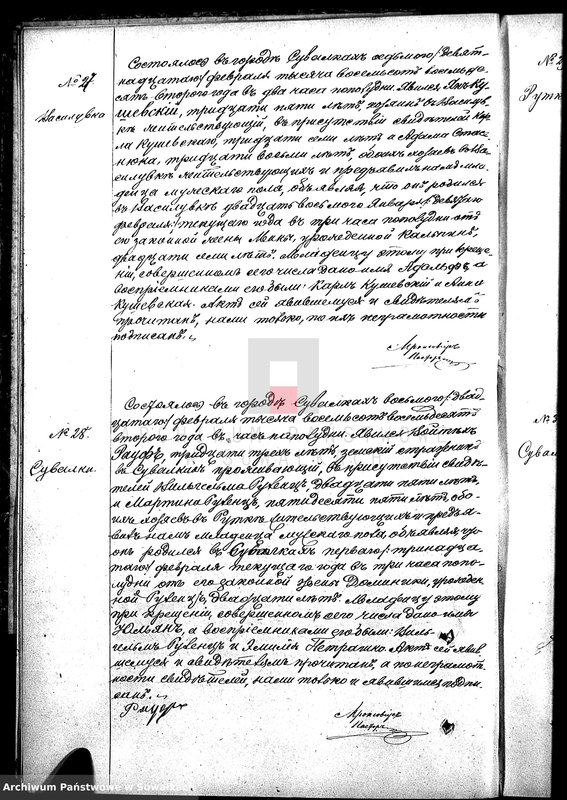 № 27
Василувка
Состоялось въ городѣ Сувалкахъ седьмого /: девят-
надцатаго :/ февраля тысяча восемьсотъ восемьде-
сятъ второго года въ два часа пополудни. Явился Янъ Ку-
шевскій, тридцати пяти лѣтъ,
жительствующій, въ присутствіи свидѣтелей Кар-
ла Кушевскаго, тридцати семи лѣтъ и Адама
тридцати восьми лѣтъ, обоихъ хозяевъ въ Ва-
силувкѣ жительствующихъ и предъявилъ намъ мла-
денца мужескаго пола, объявляя, что онъ родился
въ Василувкѣ двадцать восьмого Января /: девятаго
февраля :/ текущаго года въ три часа пополудни отъ
его законной жены урожденной
двадцати семи лѣтъ. Младенцу этому при креще-
ніи, совершенномъ сего числа дано имя Адольфъ, а
воспріемниками его были: Карлъ Кушевскій и Анна
Кушевская. Актъ сей явившемуся и свидѣтелямъ
прочитанъ, нами только, по ихъ неграмотности
подписанъ.
Пасторъ
№ 28.
Сувалки.
Состоялось въ городѣ Сувалкахъ восьмого /: двад-
цатаго :/ февраля тысяча восемьсотъ восемьдесятъ
второго года въ часъ пополудни. Явился Войтѣхъ
Рауфъ, тридцати трехъ лѣтъ, земскій стражникъ
въ Сувалкахъ проживающій, въ присутствіи свидѣ-
телей Вильгельма Рувенцъ, двадцати пяти лѣтъ,
и Мартина Рувенцъ, пятидесяти пяти лѣтъ, обо-
ихъ хозяевъ въ Руткѣ жительствующихъ и предъя-
вилъ намъ младенца мужескаго пола, объявляя, что
онъ родился въ Сувалкахъ перваго /: тринадца-
таго :/ февраля текущаго года въ три часа попо-
лудни отъ его законной жены Доминики, урожден-
ной Рувенцъ, двадцати лѣтъ. Младенцу этому
при крещеніи, совершенномъ сего числа дано имя
Юльянъ, а воспріемниками его были: Виль-
гельмъ Рувенцъ и Эмилія Петрашко. Актъ сей явив-
шемуся и свидѣтелямъ прочитанъ, а по неграмот-
ности свидѣтелей, нами только и явившимся подпи-
санъ.
Рауфъ
Пасторъ
Рутк
Сувал
Archiwum Państwowe w Suwałkach